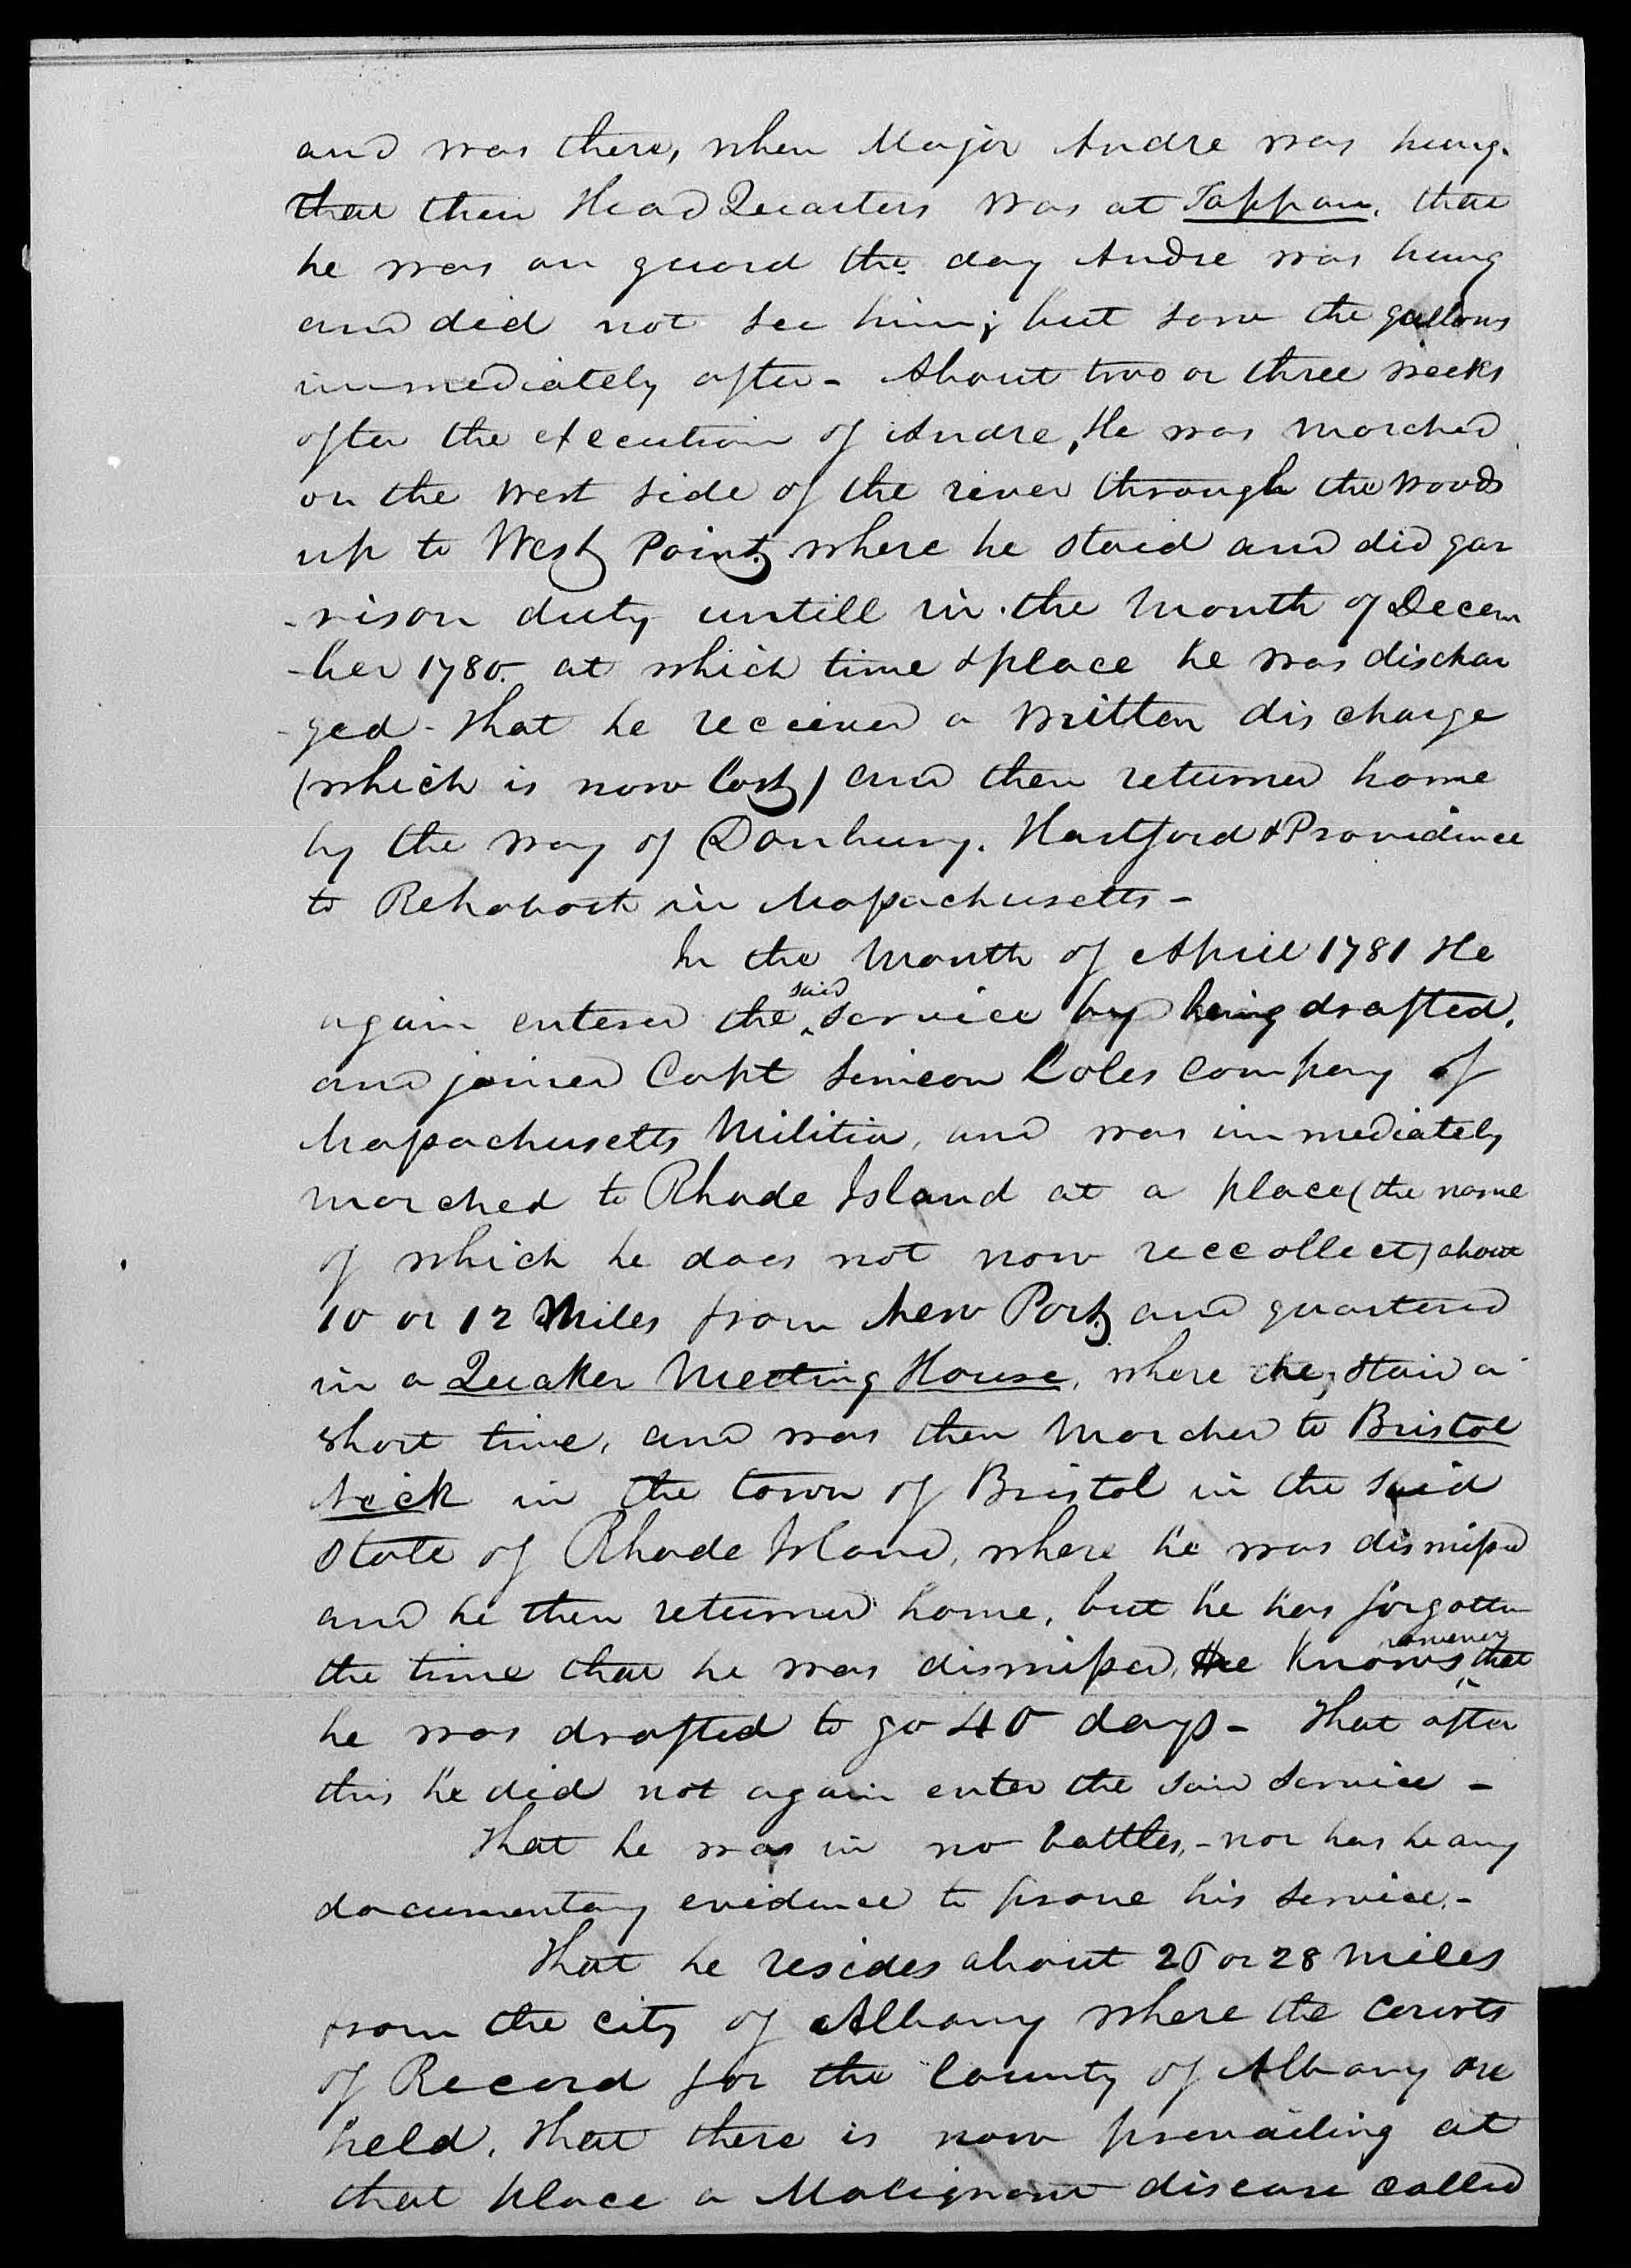 and was there, when Major Andre was hung.
that then Head Quarters was at Tappan. that
he was on guard the day Andre was hung
and did not see him; but saw the gallows
immediately after - About two or three weeks
after the execution of Andre, He was marched
on the west side of the river through the woods
up to West Point, where he staid and did gar
-rison duty untill in the Month of Decem
-ber 1780. at which time & place he was dischar
-ged - that he received a written discharge
(which is now lost) and then returned home
by the way of Danbury. Hartford & Providence
to Rehoboth in Massachusetts -
In the Month of April 1781 He
said
again entered the service by being drafted.
and joined Capt Simeon Coles company of
Massachusetts Militia, and was immediately
marched to Rhode Island at a place (the name
of which he does not now reccollect) about
10 or 12 Miles from New Port, and quartered
in a Quaker Meeting House, where they staid a
short time, and was then Marched to Bristol
Neck in the town of Bristol in the said
State of Rhode Island, where he was dismissed
and he then returned home, but he has forgotten
however
the time that he was dismissed, He knows that
he was drafted to go 40 days - That after
this he did not again enter the said service -
That he was in no battles, - nor has he any
documentary evidence to prove his service. -
That he resides about 25 or 28 miles
from the city of Albany where the Courts
of Record for the County of Albany are
held. that there is now prevailing at
that place a Malignant disease called